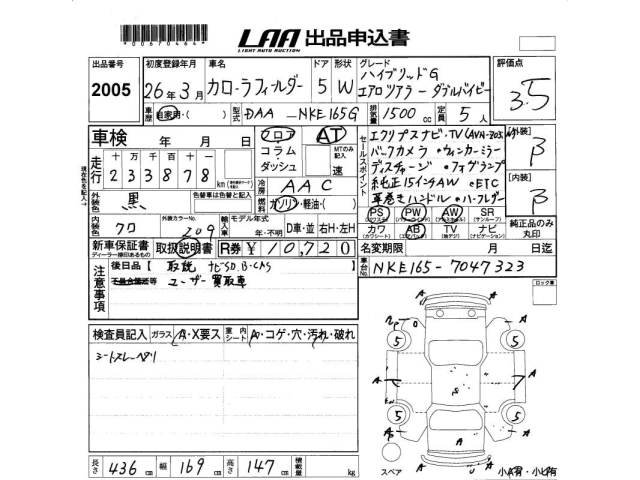 *00670464*
LAA 出品申込書
LIGHT AUTO AUCTION
出品番号 2005
初度登録年月 26年3月
車名 カローラフィールダー
ドア 5
形状 W
グレード ハイブリッドG
エアロツアラー ダブルバイビー
評価点 3.5
車歴 自家用・( )
型式 DAA-NKE165G
排気量 1500 cc
定員 5人
車検 年 月 日
フロア コラム ダッシュ
AT
MTのみ記入 速
セールスポイント
エクリプスナビ・TV(AVN-Z03
バックカメラ ・ウィンカーミラー
ディスチャージ ・フォグランプ
純正15インチAW ・ETC
革巻きハンドル ・ハーフレザー
[外装] B
[内装] B
走行 十万千百十 233878 km
冷房 AAC
外装色 黒
色替車は色替と記入
ガソリン・軽油・( )
内装色 クロ
外装カラーNo. 209
輸入車 モデル年式 年・不明
D車・並 右H・左H
PS PW AW SR (サンルーフ)
カワ (カワシート) AB (エアバック) TV (地デジ) ナビ (ナビゲーション)
純正品のみ丸印
新車保証書
ディーラー捺印あるもの
取扱説明書
R券 ¥10,720
名変期限 月 日迄
注意事項
後日品【 取説 ナビSD.B-CAS 】
ユーザー買取車
車台No. NKE165-7047323
ロック車
検査員記入
ガラス (A・X要ス
室内シート (A・コゲ・穴・汚れ・破れ
シートスレ・ヘタリ
長さ 436 cm
幅 169 cm
高さ 147 cm
積載量 kg
スペア
5 5 5 5
小A有・小U有